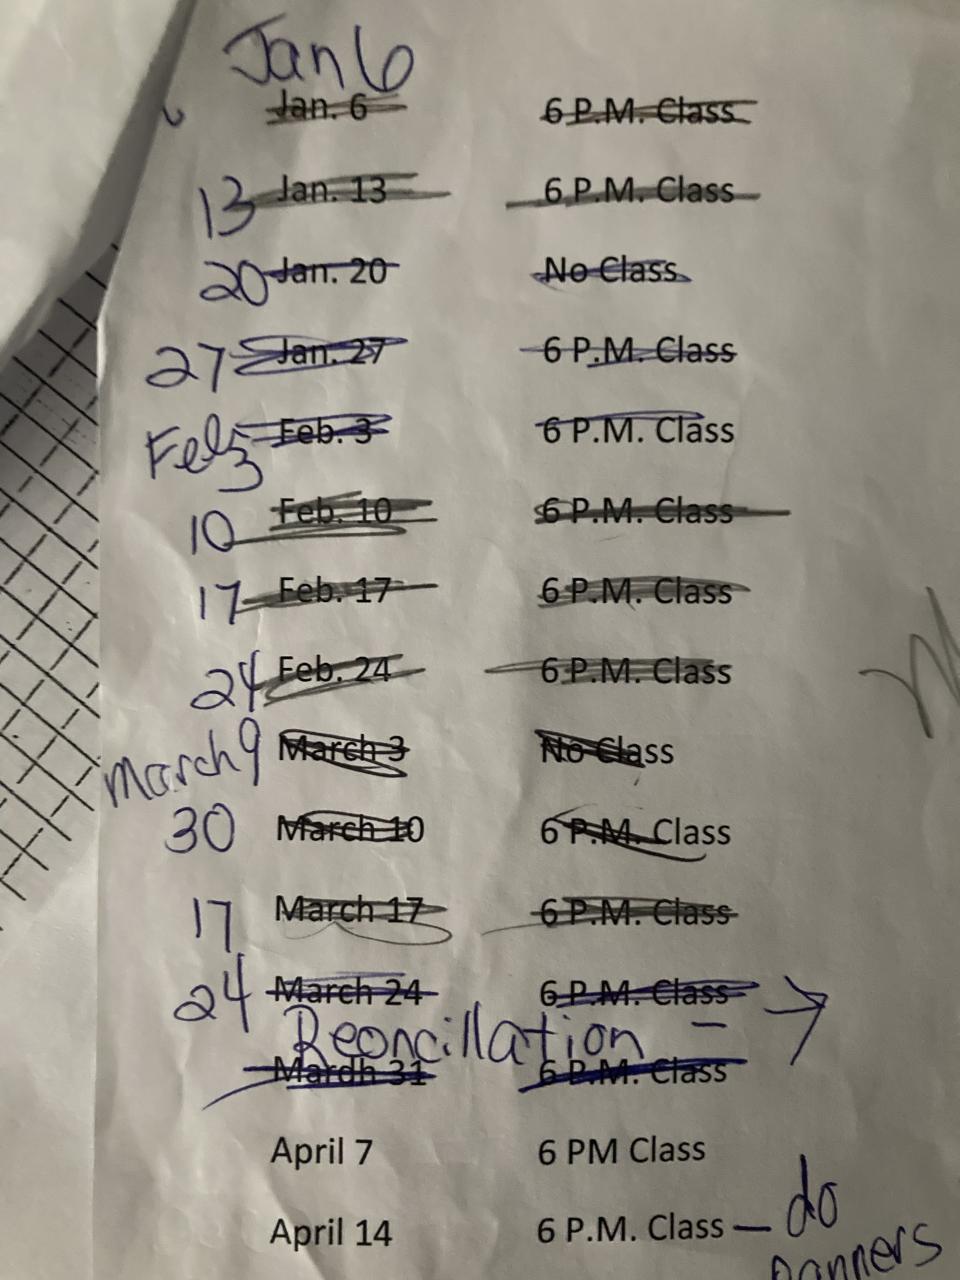 Jan 6
Jan. 6 6 P.M. Class
13 Jan. 13 6 P.M. Class
20 Jan. 20 No Class
27 Jan. 27 6 P.M. Class
Feb 3 Feb. 3 6 P.M. Class
10 Feb. 10 6 P.M. Class
17 Feb. 17 6 P.M. Class
24 Feb. 24 6 P.M. Class
March 9 March 3 No Class
30 March 10 6 P.M. Class
17 March 17 6 P.M. Class
24 March 24 6 P.M. Class
Reoncillation - →
March 31 6 P.M. Class
April 7 6 PM Class
April 14 6 P.M. Class — do
Banners